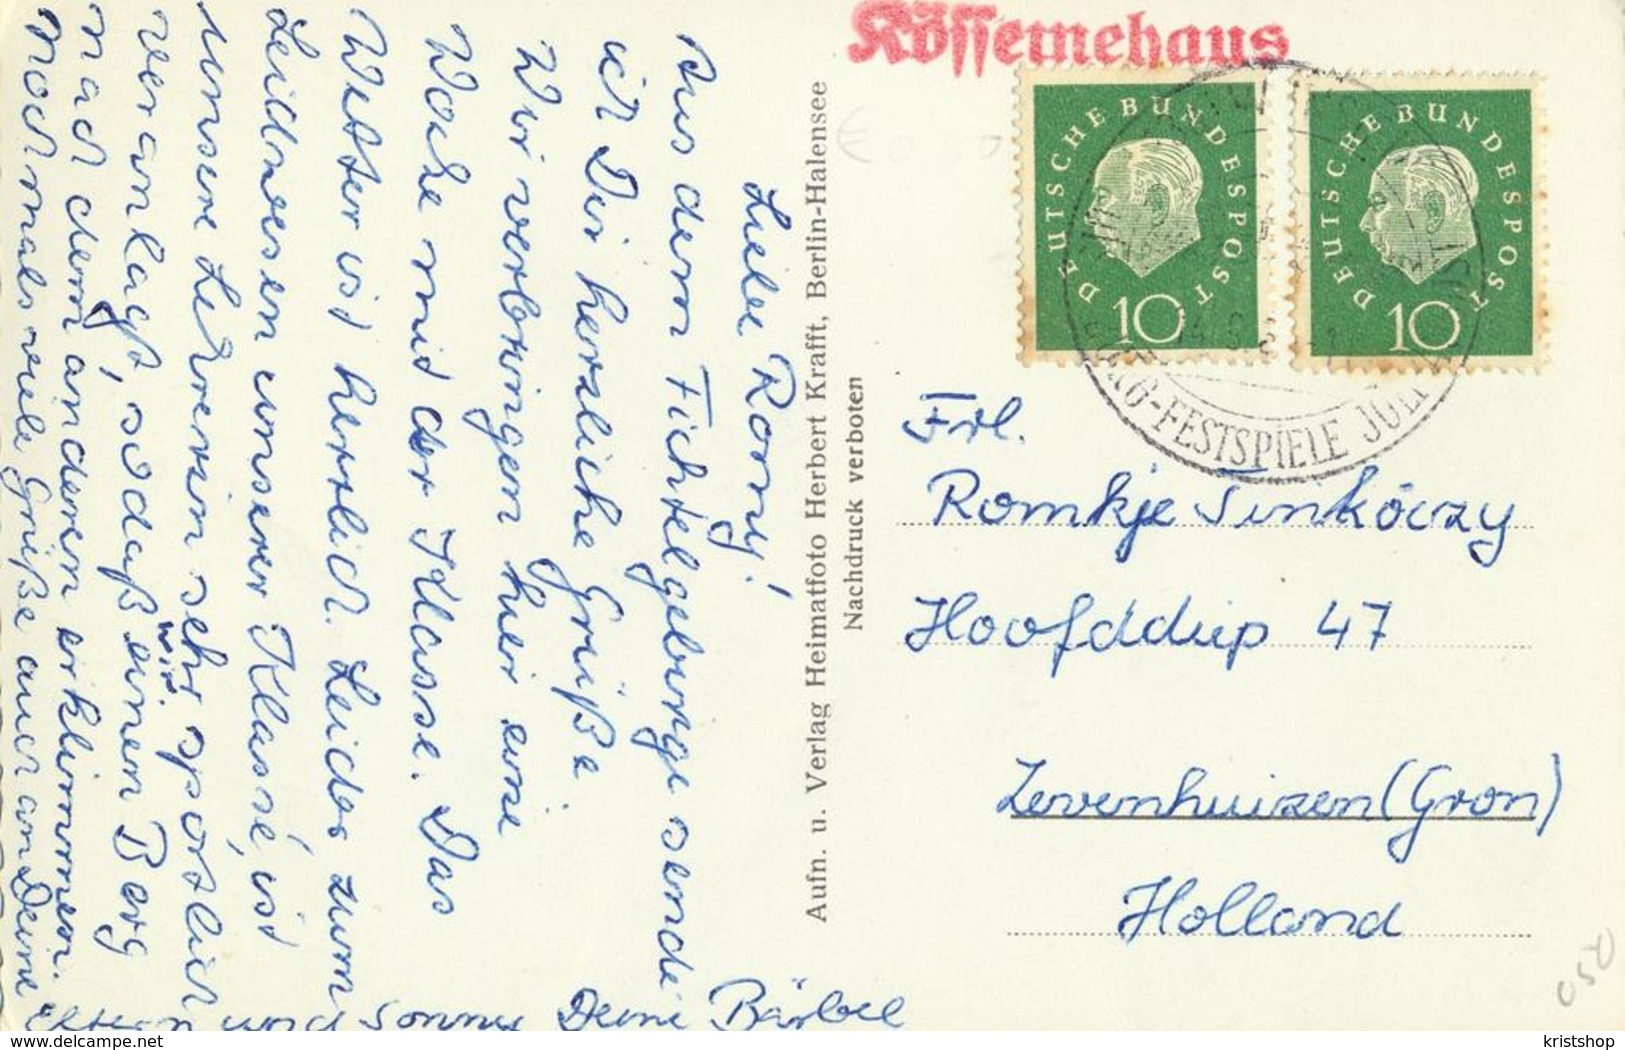 Liebe Romy!
Aus dem Fichtelgebirge sende
ich Dir herzliche Grüße
Wir verbringen hier eine
Woche mid der Klasse. Das
Wetter ist herrlich. Leider zum
Leidwesen unserer Klasse, ist
unsere Lehrerin sehr sportlich
veranlagt, sodaß wir einen Berg
nach dem anderen erklimmen.
Nochmals viele Grüße auch an Deine
Eltern und Sonny Deine Bärbel
Aufn. u. Verlag Heimatfoto Herbert Krafft, Berlin-Halensee
Nachdruck verboten
Kösseinehaus
DEUTSCHE BUNDESPOST
10
DEUTSCHE BUNDESPOST
10
BURG-FESTSPIELE JULI
Frl.
Romkje Sinkóczy
Hoofddiep 47
Zevenhuizen (Gron)
Holland
050
delcampe.net
kristshop